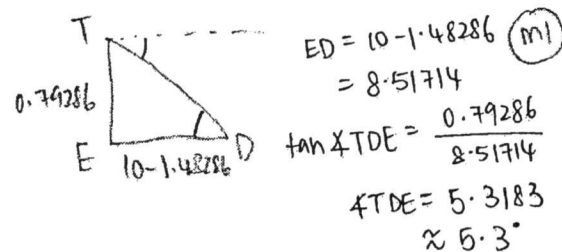 T
0.79286
E
10-1.48286
D
ED = 10-1.48286 (m1)
= 8.51714
tan∡TDE = 0.79286
8.51714
∡TDE = 5.3183
≈ 5.3°